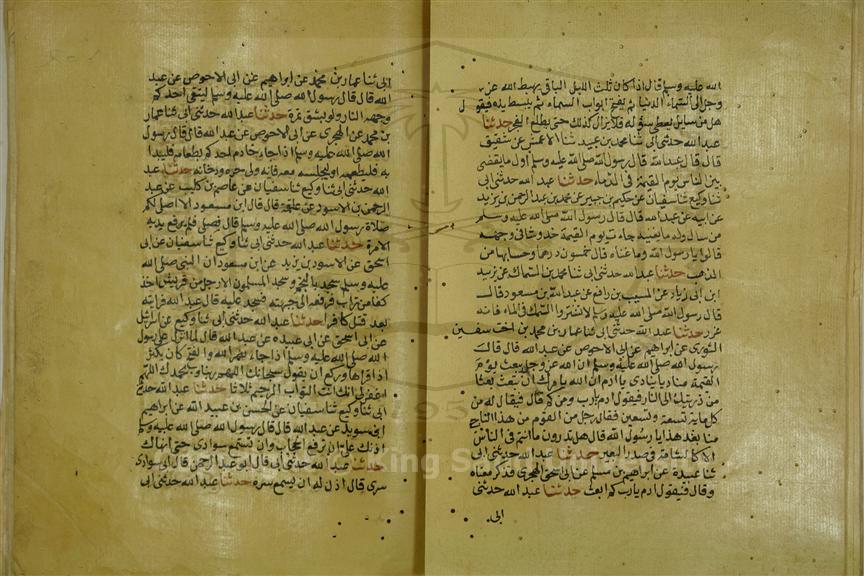 الله عليه وسلم قال اذا كان ثلث الليل الباقي يهبط الله عز
وجل الى السماء الدنيا ثم تفتح ابواب السماء ثم يبسط يده فيقول
هل من سايل يعطى سؤله فلا يزال كذلك حتى يطلع الفجر حدثنا
عبد الله حدثني ابي ثنا محمد بن عبيد ثنا الاعمش عن شقيق
قال قال عبد الله قال رسول الله صلى الله عليه وسلم اول ما يقضى
بين الناس يوم القيمة في الدماء حدثنا عبد الله حدثني ابي
ثنا وكيع ثنا سفيان عن حكيم بن جبير عن محمد بن عبد الرحمن بن يزيد
عن ابيه عن عبد الله قال قال رسول الله صلى الله عليه وسلم
من سال وله ما يغنيه جاءت يوم القيمة خدوشا في وجهه
قالوا يا رسول الله وما غناه قال خمسون درهما وحسابها من
الذهب حدثنا عبد الله حدثني ابي ثنا محمد بن السماك عن يزيد
ابن ابي زياد عن المسيب بن رافع عن عبد الله بن مسعود قال
قال رسول الله صلى الله عليه وسلم لا تشتروا السمك في الماء فانه
غرر حدثنا عبد الله حدثني ابي ثنا عمار بن محمد بن اخت سفين
الثوري عن ابراهيم عن ابي الاحوص عن عبد الله قال قال
رسول الله صلى الله عليه وسلم ان الله عز وجل يبعث يوم
القيمة مناديا ينادي يا ادم ان الله يامرك ان تبعث بعثا
من ذريتك الى النار فيقول ادم يا رب ومن كم قال فيقال له من
كل ماية تسعة وتسعين فقال رجل من القوم من هذا الناجي
منا بعد هذا يا رسول الله قال هل تدرون ما انتم في الناس
الا كالشامة في صدر البعير حدثنا عبد الله حدثني ابي
ثنا عبيدة عن ابراهيم بن مسلم عن ابي اسحق الهجري فذكر معناه
وقال فيقول ادم يا رب كم ابعث حدثنا عبد الله حدثني
ابي
ابي ثنا عمار بن محمد عن ابراهيم عن ابي الاحوص عن عبد
الله قال قال رسول الله صلى الله عليه وسلم ليتقي احدكم
وجهه النار ولو بشق تمرة حدثنا عبد الله حدثني ابي ثنا عمار
بن محمد عن الهجري عن ابي الاحوص عن عبد الله قال قال رسول
الله صلى الله عليه وسلم اذا جاء خادم احدكم بطعامه فليبدا
به فليطعمه او ليجلسه معه فانه ولي حره ودخانه حدثنا عبد
الله حدثني ابي ثنا وكيع ثنا سفيان عن عاصم بن كليب عن عبد
الرحمن بن الاسود عن علقمة قال قال ابن مسعود الا اصلي لكم
صلاة رسول الله صلى الله عليه وسلم قال فصلى فلم يرفع يديه
الا مرة حدثنا عبد الله حدثني ابي ثنا وكيع ثنا سفيان عن ابي
اسحق عن الاسود بن يزيد عن ابن مسعود ان النبي صلى الله
عليه وسلم سجد بالنجم وسجد المسلمون الا رجل من قريش اخذ
كفا من تراب فرفعه الى جبهته فسجد عليه قال عبد الله فرايته
بعد قتل كافرا حدثنا عبد الله حدثني ابي ثنا وكيع عن اسرائيل
عن ابي اسحق عن ابي عبيدة عن عبد الله قال لما انزل على رسول
الله صلى الله عليه وسلم اذا جاء نصر الله والفتح كان يكثر
اذا قراها وركع ان يقول سبحانك اللهم ربنا وبحمدك اللهم
اغفر لي انك انت التواب الرحيم ثلاثا حدثنا عبد الله حدثني
ابي ثنا وكيع ثنا سفيان عن الحسن بن عبيد الله عن ابراهيم
ابن سويد عن عبد الله قال قال رسول الله صلى الله عليه وسلم
اذنك علي ان ترفع الحجاب وان تستمع سوادي حتى انهاك
حدثنا عبد الله حدثني ابي قال ابو عبد الرحمن قال ابي سوادي
سري قال اذن له ان يسمع سره حدثنا عبد الله حدثني ابي